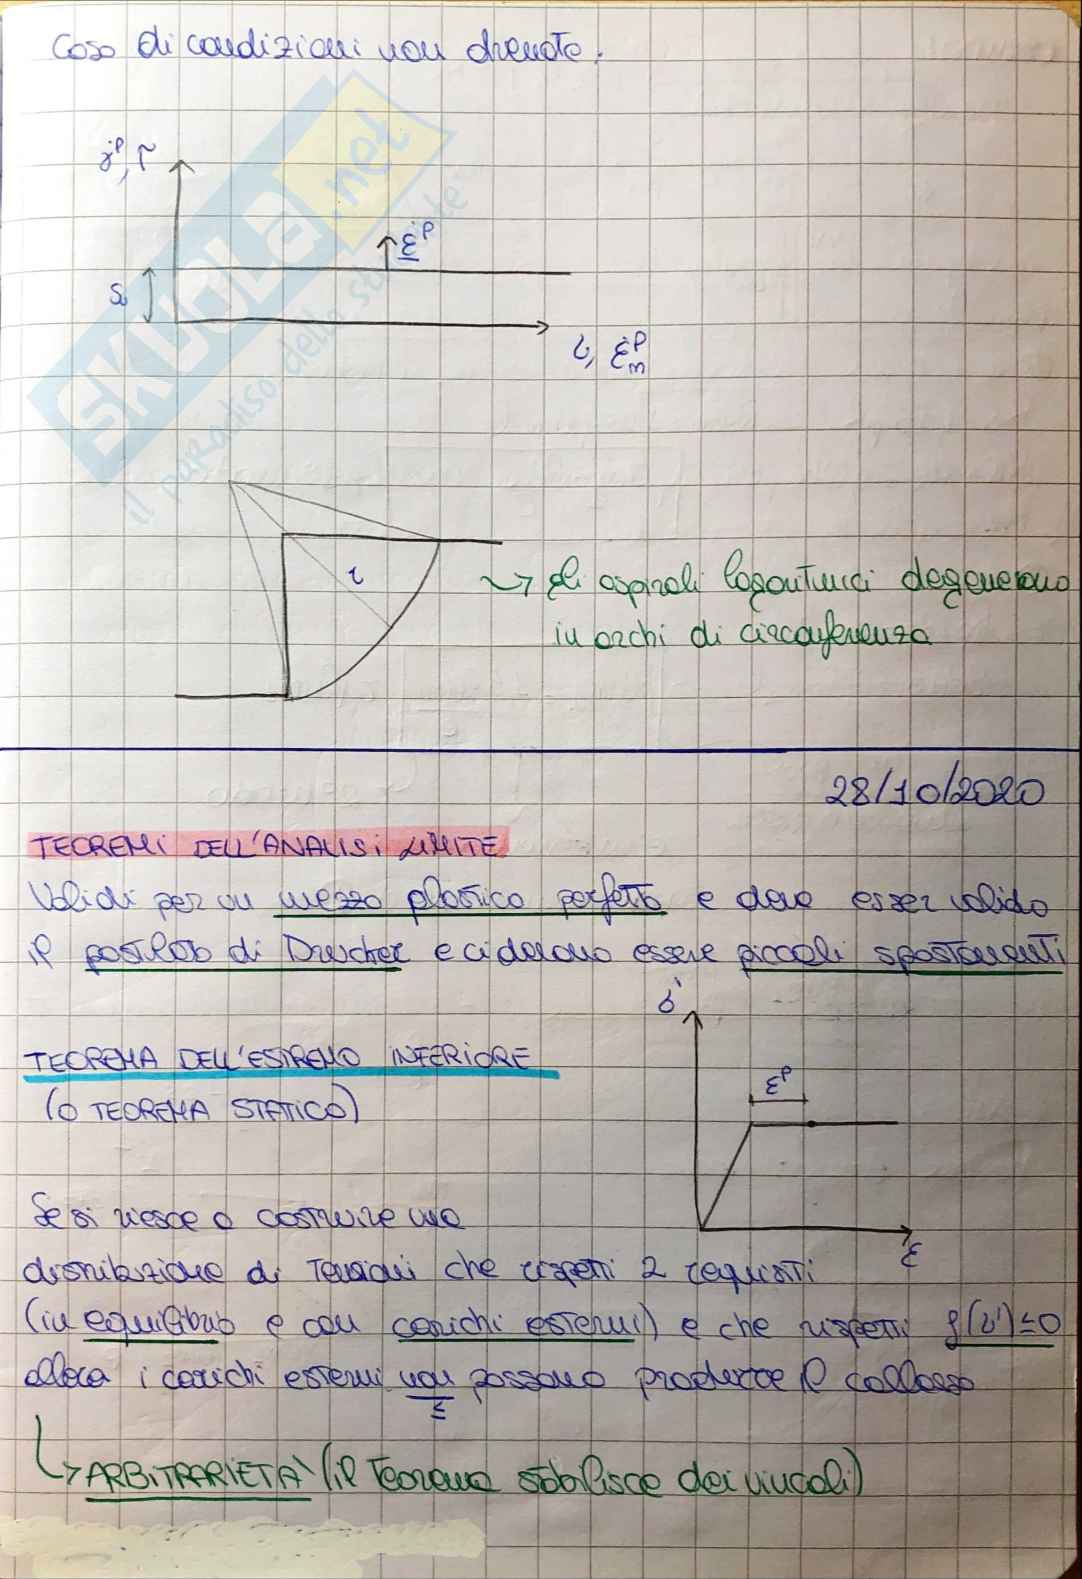 Caso di condizioni non drenate:
γ̇ᵖ, τ
ε̇ᵖ
Su
σ, ε̇ᵖₙ
SKUOLA.net
il paradiso dello studente
r
→ gli aspirali logaritmici degenerano
in archi di circonferenza
28/10/2020
TEOREMI DELL'ANALISI LIMITE
Validi per un mezzo plastico perfetto e deve esser valido
il postulato di Drucker e ci devono essere piccoli spostamenti
σ'
TEOREMA DELL'ESTREMO INFERIORE
εᵖ
(O TEOREMA STATICO)
Se si riesce a costruire una
ε
distribuzione di tensioni che rispetti 2 requisiti
(in equilibrio e con carichi esterni) e che rispetti f(σ')≤0
allora i carichi esterni non possono produrre il collasso
↳ ARBITRARIETA' (il teorema stabilisce dei vincoli)